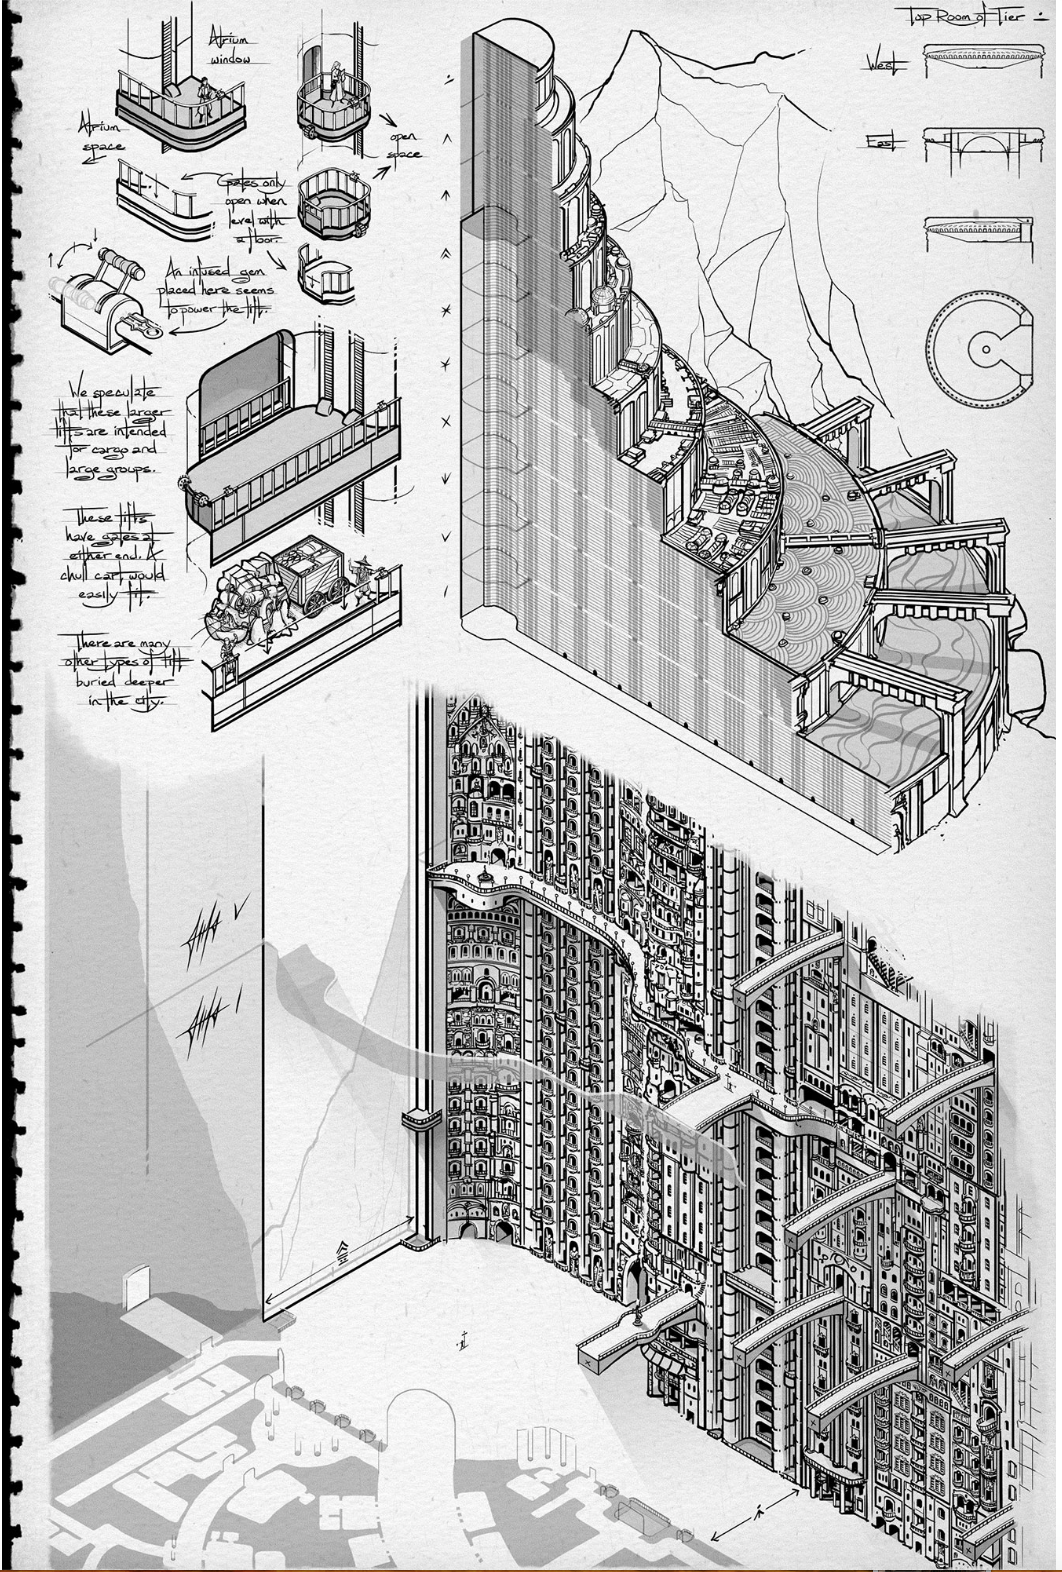 Atrium
window
Atrium
space
open
space
Gates only
open when
level with
a floor.
An infused gem
placed here seems
to power the lift.
We speculate
that these larger
lifts are intended
for cargo and
large groups.
These lifts
have gates at
either end. A
chull cart would
easily fit.
There are many
other types of lift
buried deeper
in the city.
Top Room of Tier
West
East